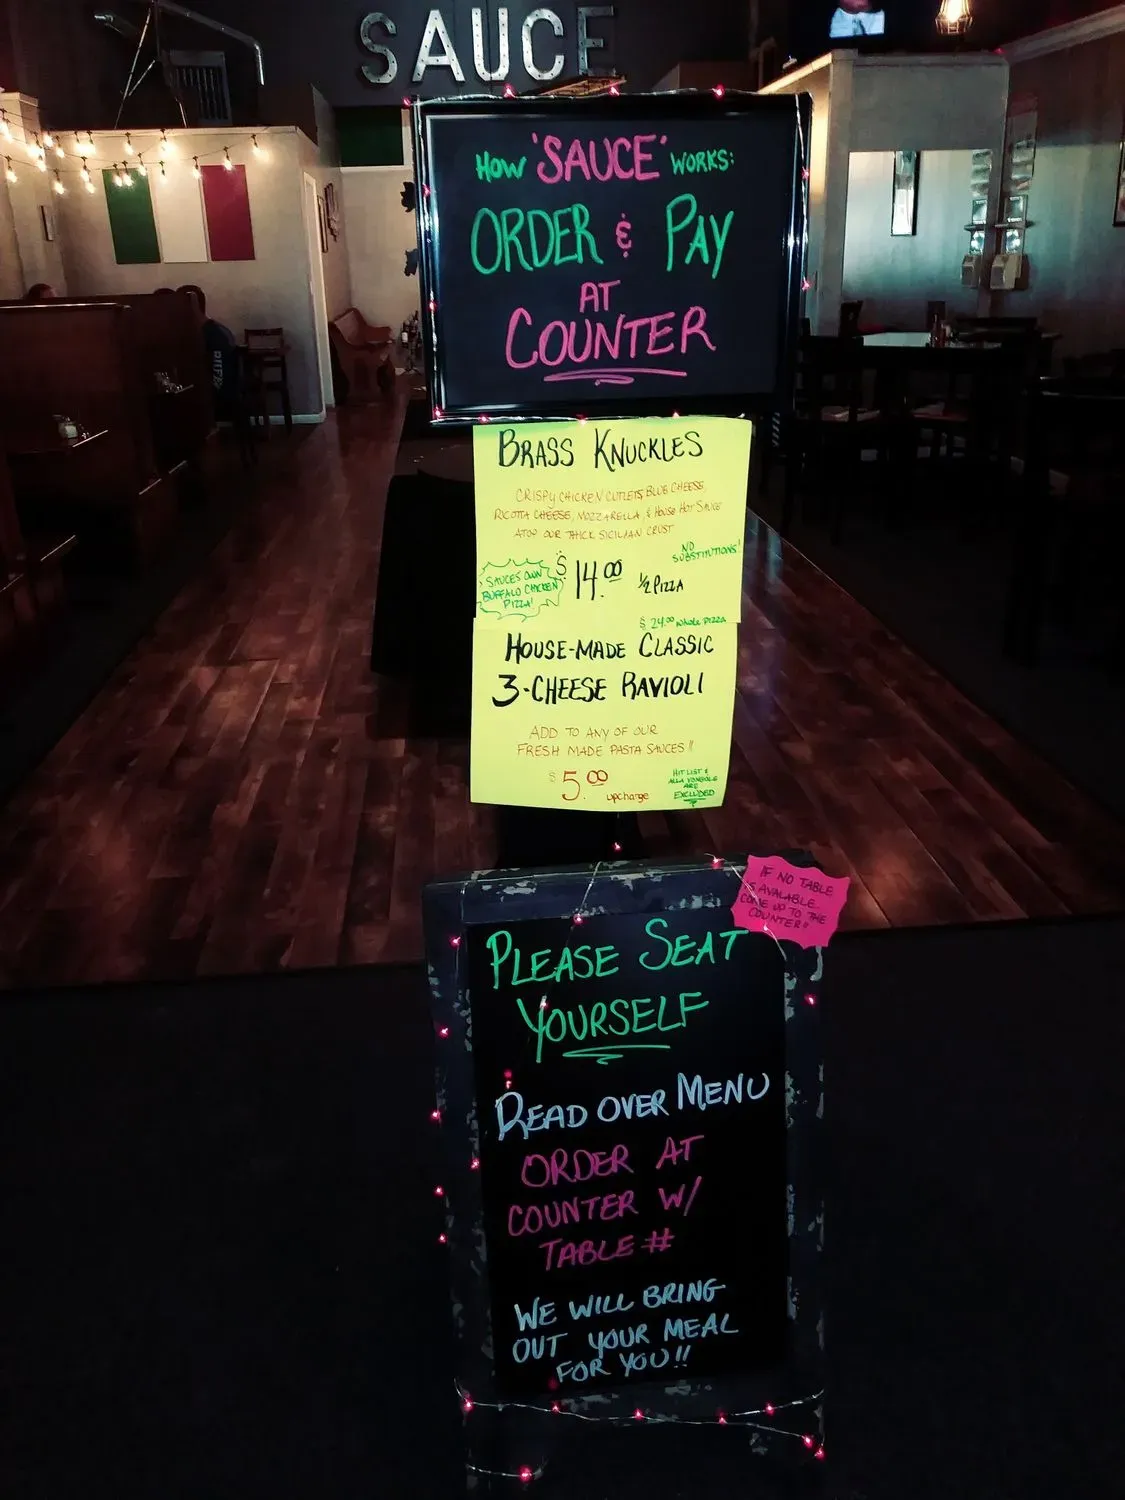 SAUCE
HOW 'SAUCE' WORKS:
ORDER & PAY
AT
COUNTER
BRASS KNUCKLES
CRISPY CHICKEN CUTLETS, BLUE CHEESE,
RICOTTA CHEESE, MOZZARELLA, & HOUSE HOT SAUCE
ATOP OUR THICK SICILIAN CRUST
NO
SUBSTITUTIONS!
SAUCE'S OWN
BUFFALO CHICKEN
PIZZA!
$14.00 1/2 PIZZA
$24.00 WHOLE PIZZA
HOUSE-MADE CLASSIC
3-CHEESE RAVIOLI
ADD TO ANY OF OUR
FRESH MADE PASTA SAUCES!!
$5.00 upcharge
HIT LIST &
ALLA VONGOLE
ARE
EXCLUDED
IF NO TABLE
IS AVAILABLE
COME UP TO THE
COUNTER!!
PLEASE SEAT
YOURSELF
READ OVER MENU
ORDER AT
COUNTER W/
TABLE #
WE WILL BRING
OUT YOUR MEAL
FOR YOU!!